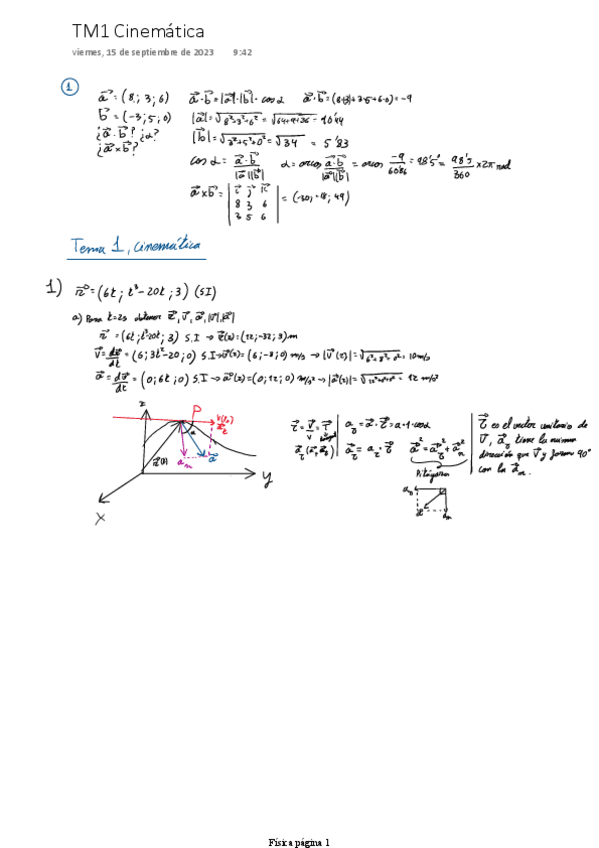 TM1 Cinemática
viernes, 15 de septiembre de 2023 9:42
①
a⃗ = (8; 3; 6) a⃗·b⃗ = |a⃗|·|b⃗|· cos α a⃗·b⃗ = (8·(-3)+3·5+6·0) = -9
b⃗ = (-3; 5; 0) |a⃗| = √(8²+3²+6²) = √(64+9+36) = 10'44
¿a⃗·b⃗? ¿α? |b⃗| = √(3²+5²+0²) = √34 = 5'83
¿a⃗×b⃗? cos α = a⃗·b⃗ / |a⃗||b⃗| α = arcos a⃗·b⃗ / |a⃗||b⃗| = arcos -9 / 60'86 = 98'5° = 98'5 / 360 × 2π rad
a⃗×b⃗ = | i⃗ j⃗ k⃗ | = (-30; -18; 49)
8 3 6
3 5 6
Tema 1, cinemática
1) r⃗ = (6t; t³-20t; 3) (SI)
a) Para t=2s obtener r⃗, v⃗, a⃗, |v⃗|, |a⃗|
r⃗ = (6t; t³-20t; 3) S.I → r⃗(2) = (12; -32; 3) m
v⃗ = dr⃗/dt = (6; 3t²-20; 0) S.I → v⃗(2) = (6; -8; 0) m/s → |v⃗(2)| = √(6²+8²+0²) = 10 m/s
a⃗ = dv⃗/dt = (0; 6t; 0) S.I → a⃗(2) = (0; 12; 0) m/s² → |a⃗(2)| = √(12²+0²+0²) = 12 m/s²
z P
a⃗n a⃗ α
r⃗(t)
y
x
a⃗τ = aτ·τ⃗ a⃗² = a⃗τ² + a⃗n²
Pitágoras
τ⃗ es el vector unitario de
v⃗, a⃗τ tiene la misma
dirección que v⃗ y forman 90°
con la a⃗n.
aτ
a⃗ an
Física página 1